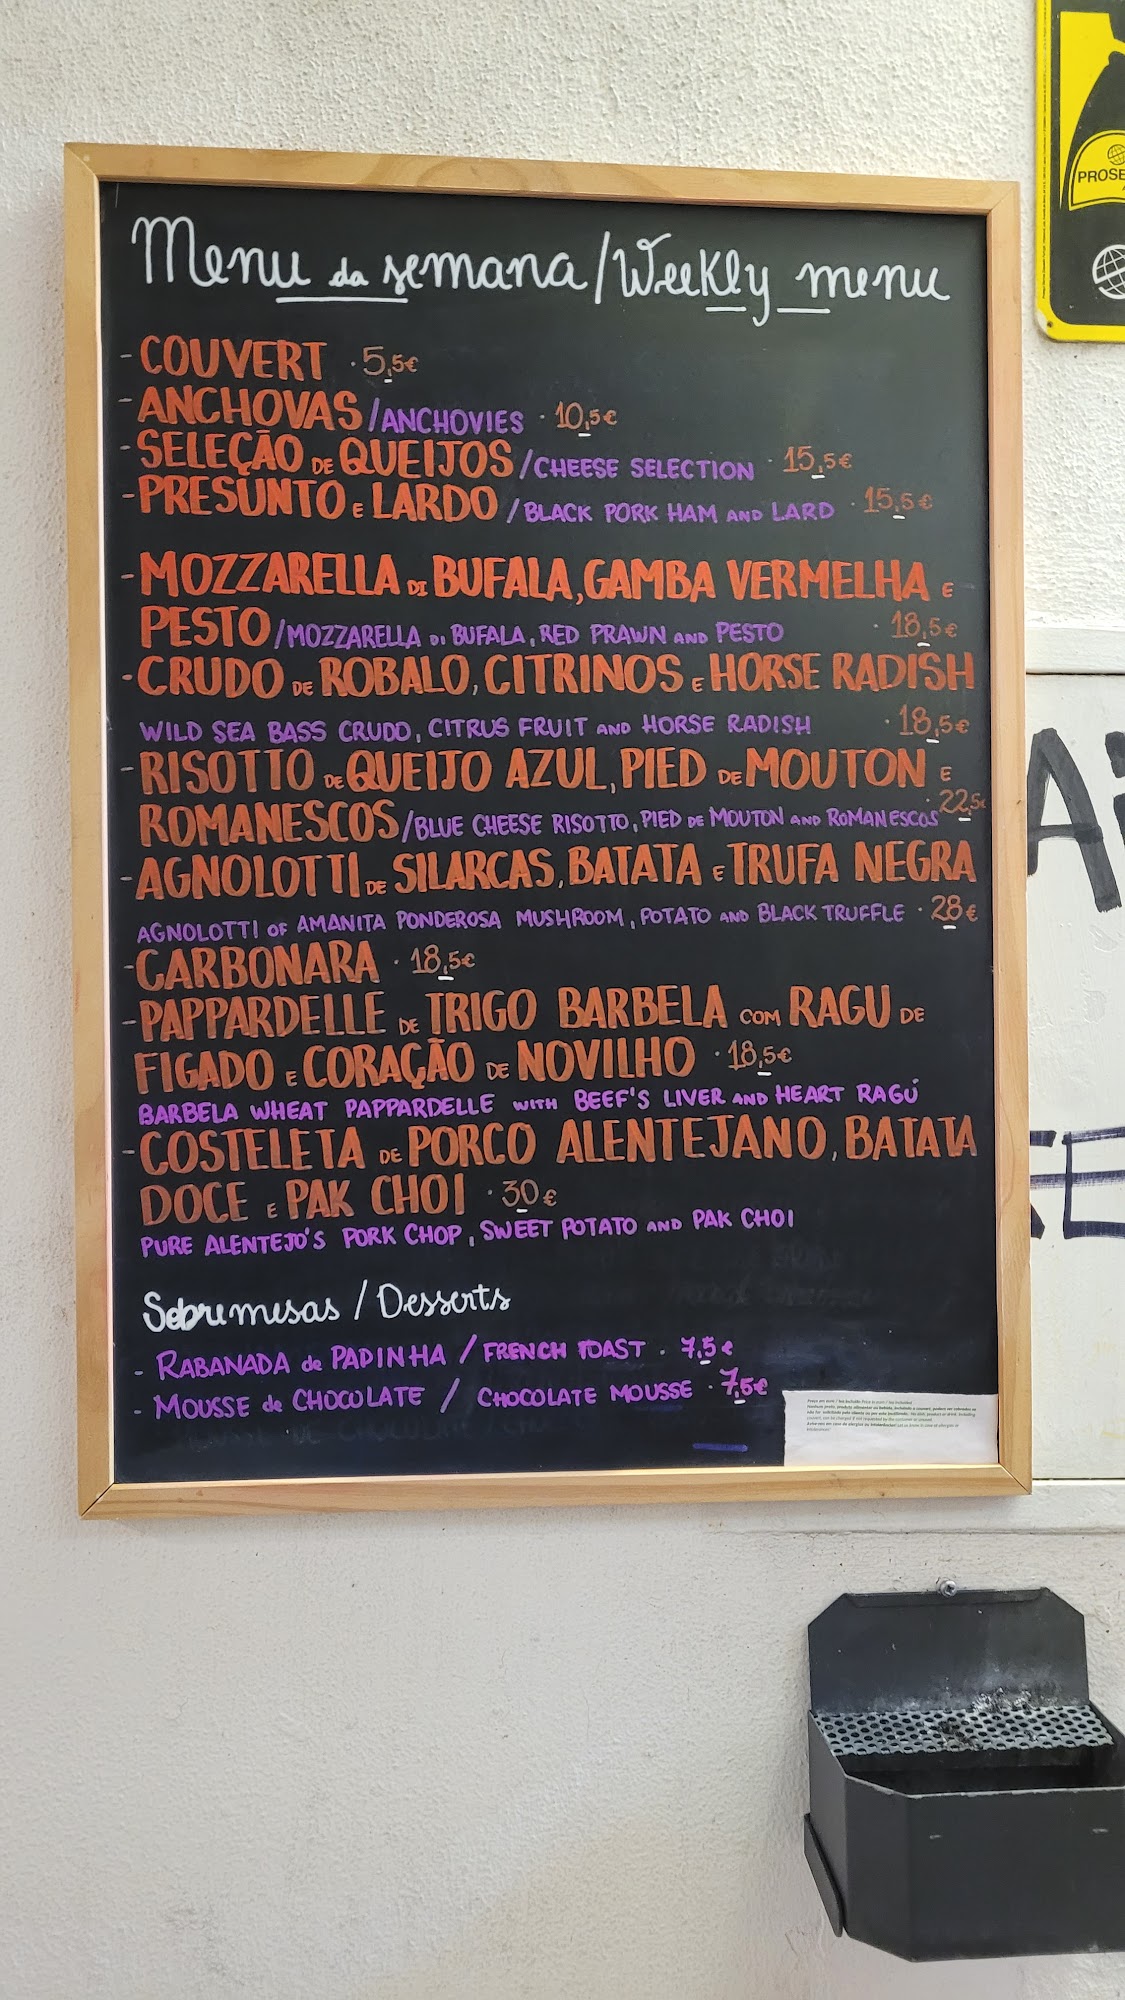 Menu da semana / Weekly menu
- COUVERT · 5,5€
- ANCHOVAS / ANCHOVIES · 10,5€
- SELEÇÃO DE QUEIJOS / CHEESE SELECTION · 15,5€
- PRESUNTO E LARDO / BLACK PORK HAM AND LARD · 15,5€
- MOZZARELLA DI BUFALA, GAMBA VERMELHA E
PESTO / MOZZARELLA DI BUFALA, RED PRAWN AND PESTO · 18,5€
- CRUDO DE ROBALO, CITRINOS E HORSE RADISH
WILD SEA BASS CRUDO, CITRUS FRUIT AND HORSE RADISH · 18,5€
- RISOTTO DE QUEIJO AZUL, PIED DE MOUTON E
ROMANESCOS / BLUE CHEESE RISOTTO, PIED DE MOUTON AND ROMANESCOS · 22,5€
- AGNOLOTTI DE SILARCAS, BATATA E TRUFA NEGRA
AGNOLOTTI OF AMANITA PONDEROSA MUSHROOM, POTATO AND BLACK TRUFFLE · 28€
- CARBONARA · 18,5€
- PAPPARDELLE DE TRIGO BARBELA COM RAGU DE
FIGADO E CORAÇÃO DE NOVILHO · 18,5€
BARBELA WHEAT PAPPARDELLE WITH BEEF'S LIVER AND HEART RAGÚ
- COSTELETA DE PORCO ALENTEJANO, BATATA
DOCE E PAK CHOI · 30€
PURE ALENTEJO'S PORK CHOP, SWEET POTATO AND PAK CHOI
Sobremesas / Desserts
- RABANADA de PADINHA / FRENCH TOAST · 7,5€
- MOUSSE de CHOCOLATE / CHOCOLATE MOUSSE · 7,5€